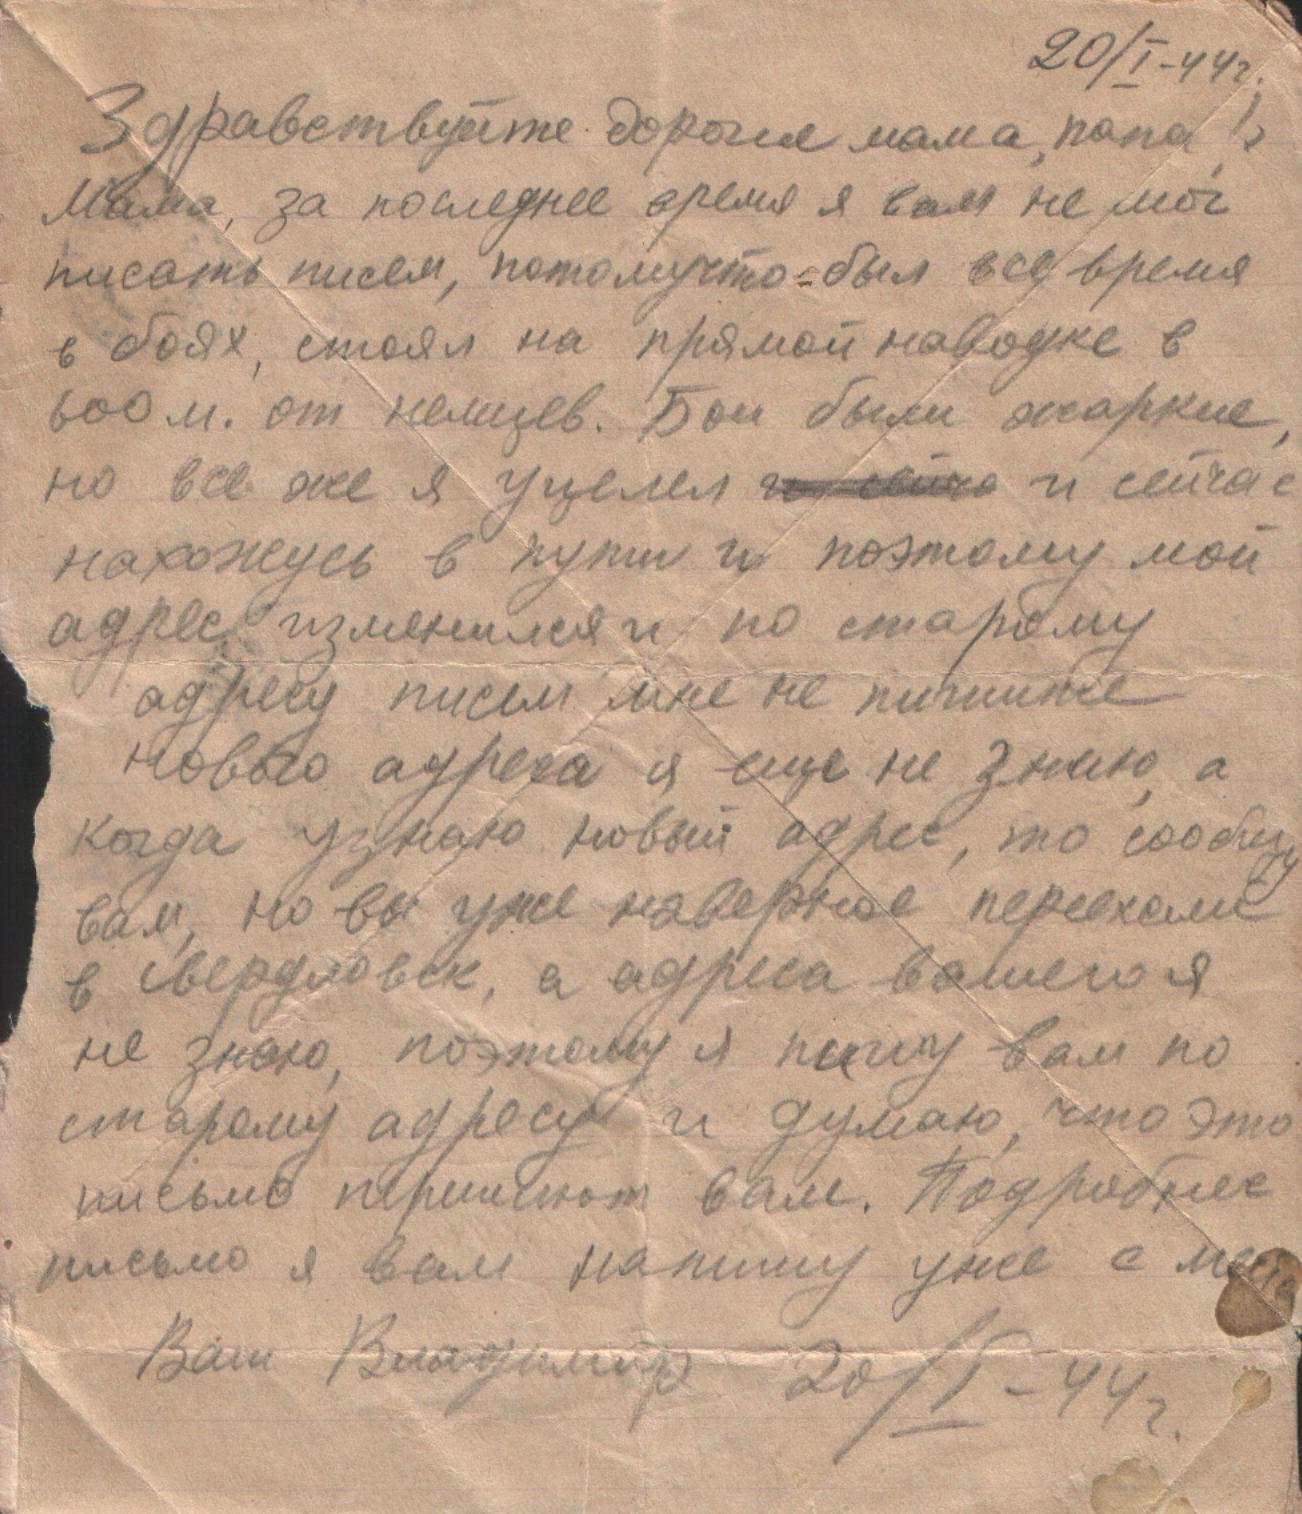 20/I-44г.
Здравствуйте дорогие мама, папа!
Мама, за последнее время я вам не мог
писать писем, потомучто был все время
в боях, стоял на прямой наводке в
600 м. от немцев. Бои были жаркие,
но все же я уцелел и сейчас
нахожусь в пути и поэтому мой
адрес изменился и по старому
адресу писем мне не пишите
Нового адреса я еще не знаю, а
когда узнаю новый адрес, то сообщу
вам, но вы уже наверное переехали
в Свердловск, а адреса вашего я
не знаю, поэтому я пишу вам по
старому адресу и думаю, что это
письмо перешлют вам. Подробнее
письмо я вам напишу уже с места
Ваш Владимир 20/I-44г.